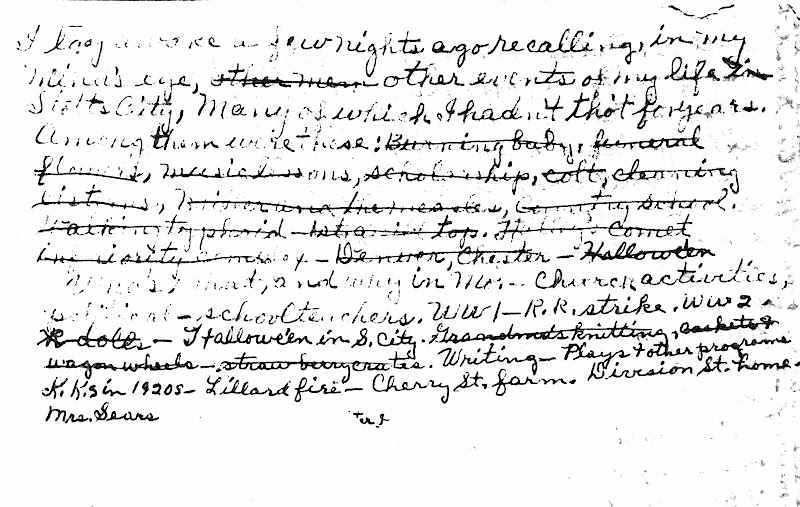 I lay awake a few nights ago recalling, in my
mind's eye, other men other events of my life in
Scotts City, Many of which I hadn't tho't for years.
Among them were these: Burning baby, funeral
flowers, music lessons, scholarship, colt, cleaning
cisterns, and the measles, country school.
Walking typhoid - top. Halley's Comet
inferiority complex - Denver, Chester - Hallowe'en
Who's mad, and why in Mo. - Church activities,
political - school teachers. WW1 - R.R. strike. WW2 -
dolls - Hallowe'en in S. City. Grandma's knitting, baskets &
wagon wheels - strawberry crates. Writing - Plays & other programs
K.K.s in 1920s - Lillard fire - Cherry St. farm. Division St. home.
Mrs. Sears